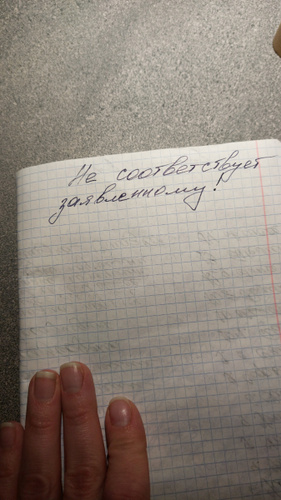 Не соответствует
заявленному!